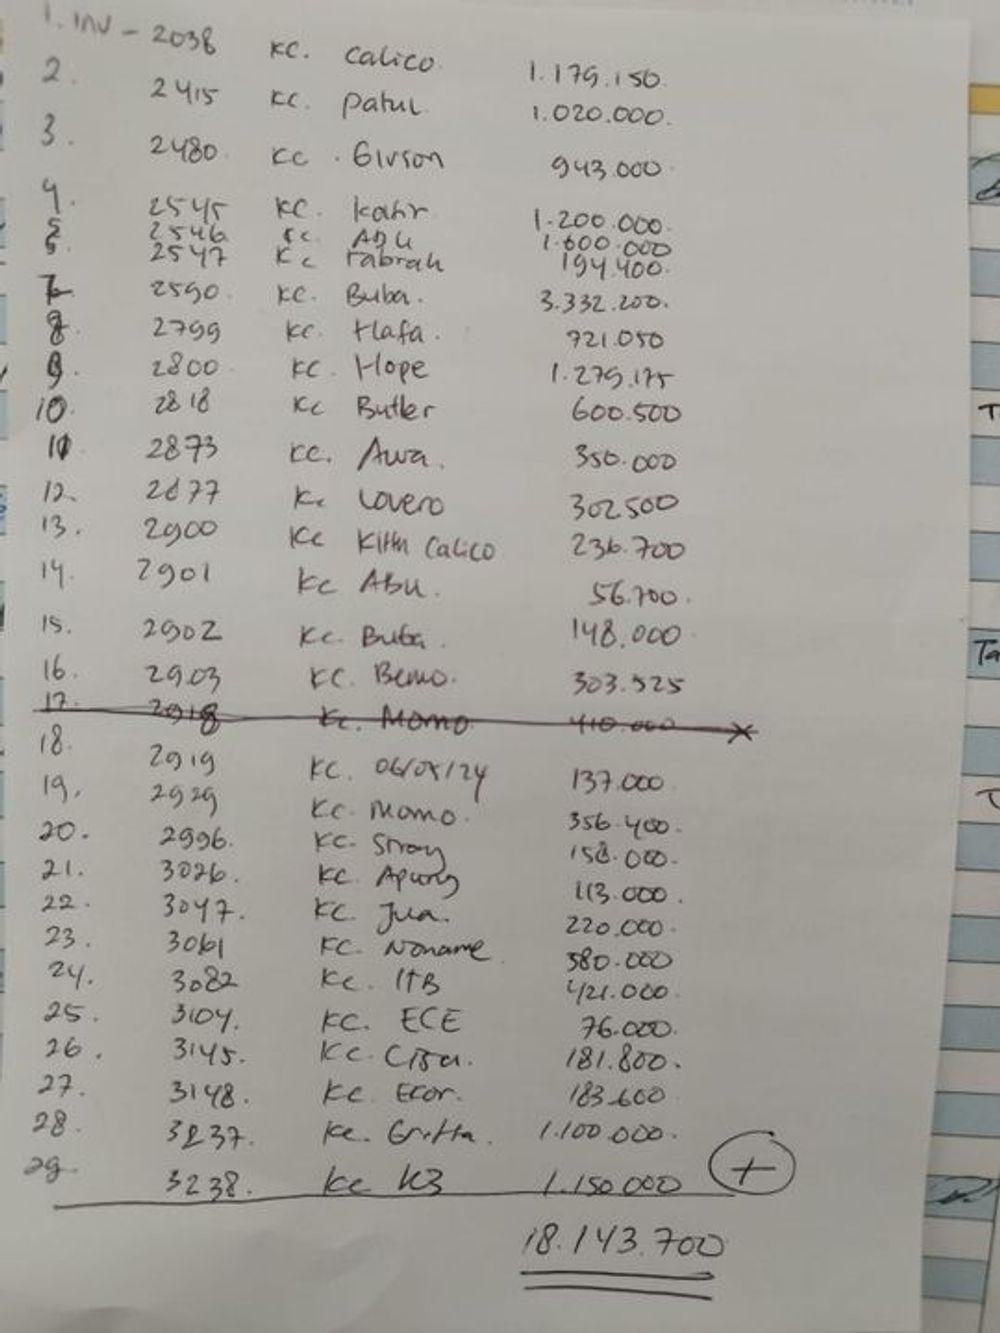 1. INV - 2038 KC. Calico 1.179.150.
2. 2415 KC. Patul. 1.020.000.
3. 2480 KC. Givson 943.000.
4. 2545 KC. Katir 1.200.000.
5 2546 KC. ABU 1.600.000
6. 2547 KC Fabrah 194.400.
7. 2590. KC. Buba. 3.332.200.
8. 2799 KC. Hafa. 721.050
9. 2800 KC. Hope 1.279.175
10. 2818 KC Butler 600.500
11. 2873 KC. Awa. 350.000
12. 2877 KC Lovero 302.500
13. 2900 KC Kittn Calico 236.700
14. 2901 KC ABU. 56.700.
15. 2902 KC. Buba. 148.000
16. 2903 KC. Bemo. 303.525
17. 2918 KC. Momo 410.000
18. 2919 KC. 06/08/24 137.000
19. 2929 KC. Momo. 356.400.
20. 2996. KC. Stray 158.000.
21. 3026. KC. Apung 113.000.
22. 3047. KC. Jua. 220.000.
23. 3061 KC. Noname 380.000
24. 3082 KC. ITB 421.000.
25. 3104. KC. ECE 76.000.
26. 3145. KC. Cisa. 181.800.
27. 3148. KC. Ecor. 183.600
28. 3237. KC. Gritta. 1.100.000.
29. 3238. KC K3 1.150.000 +
18.143.700